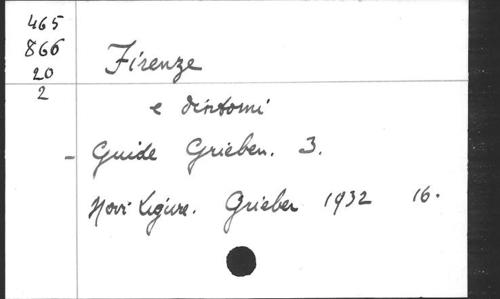 465
866
20
2
Firenze
e dintorni
- Guide Grieben. 3.
Novi Ligure. Grieben 1932 16.